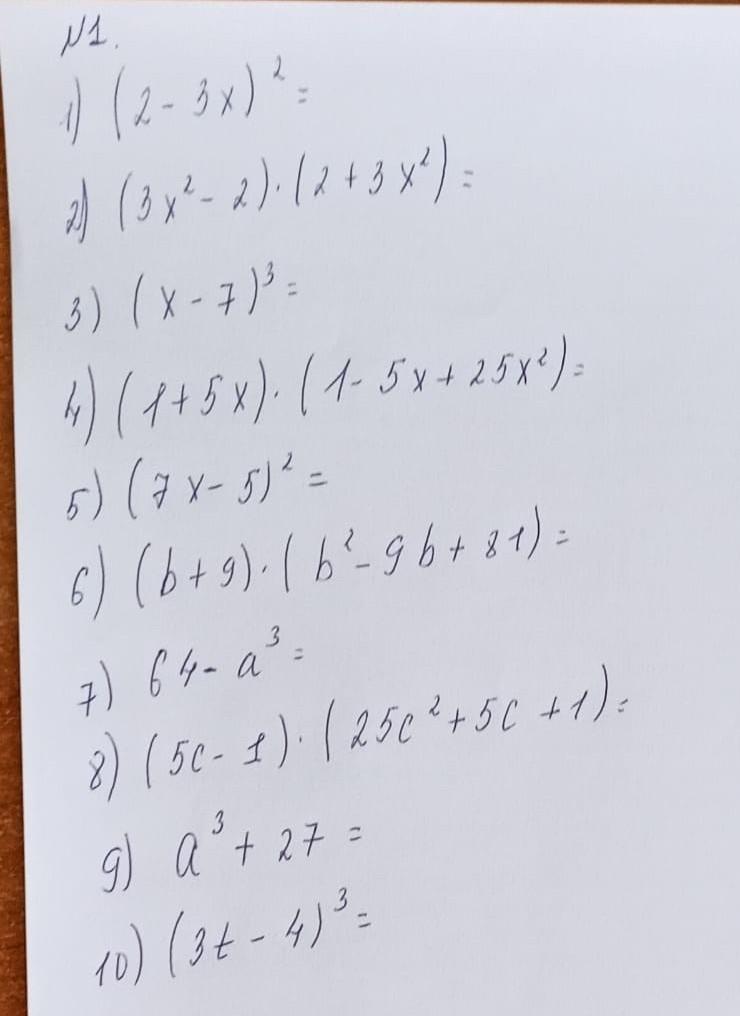 N1.
1) (2 - 3x)² =
2) (3x² - 2) · (2 + 3x²) =
3) (x - 7)³ =
4) (1 + 5x) · (1 - 5x + 25x²) =
5) (7x - 5)² =
6) (b + 9) · (b² - 9b + 81) =
7) 64 - a³ =
8) (5c - 1) · (25c² + 5c + 1) =
9) a³ + 27 =
10) (3t - 4)³ =